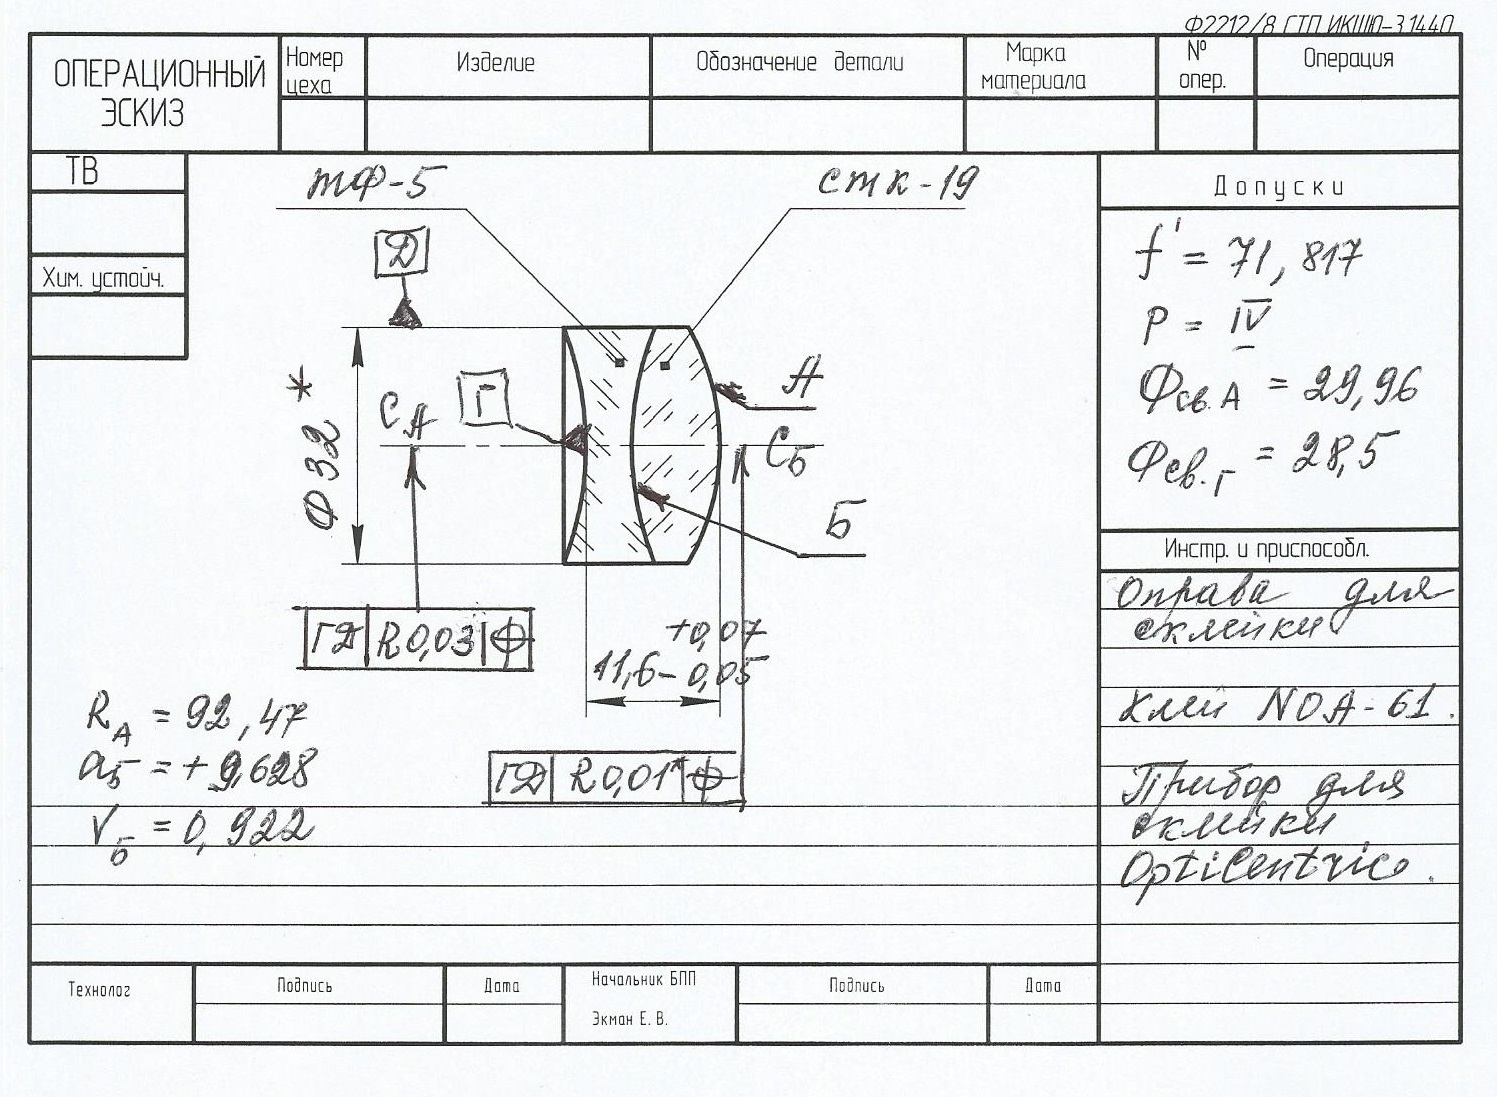 Ф2212/8 СТП ИКШЮ-31440
ОПЕРАЦИОННЫЙ
ЭСКИЗ
Номер
цеха
Изделие
Обозначение детали
Марка
материала
№
опер.
Операция
ТВ
Хим. устойч.
ТФ-5
СТК-19
Д
Г
А
Б
Ф32*
CА
CБ
ГД R0,03 Ф
+0,07
11,6-0,05
ГД R0,01* Ф
RА = 92,47
aБ = +9,628
VБ = 0,922
Допуски
f' = 71,817
P = IV
Фсв.А = 29,96
Фсв.Г = 28,5
Инстр. и приспособл.
Оправа для
склейки
Клей NOA-61.
Прибор для
склейки
OptiCentric.
Технолог
Подпись
Дата
Начальник БПП
Экман Е. В.
Подпись
Дата